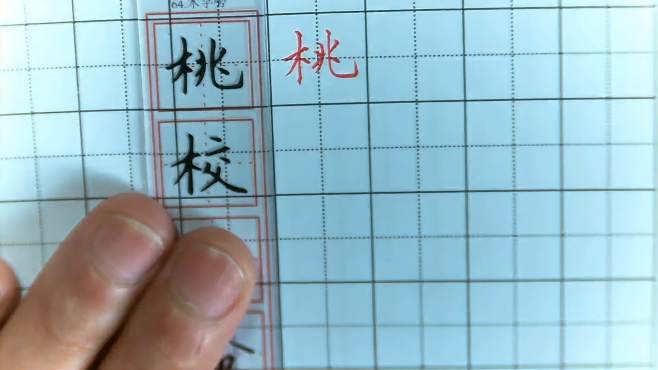 64.木字旁
桃 桃
校